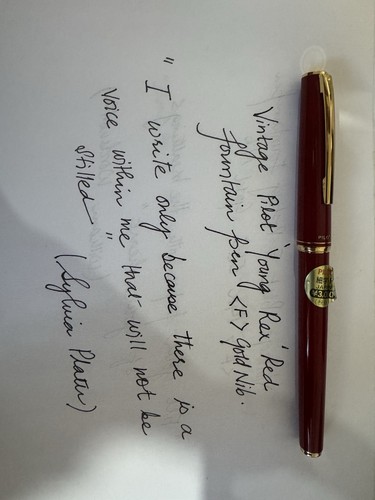 Vintage Pilot 'Young Rex' Red
fountain pen <F> Gold Nib.
" I write only because there is a
voice within me that will not be
stilled "
(Sylvia Plath)